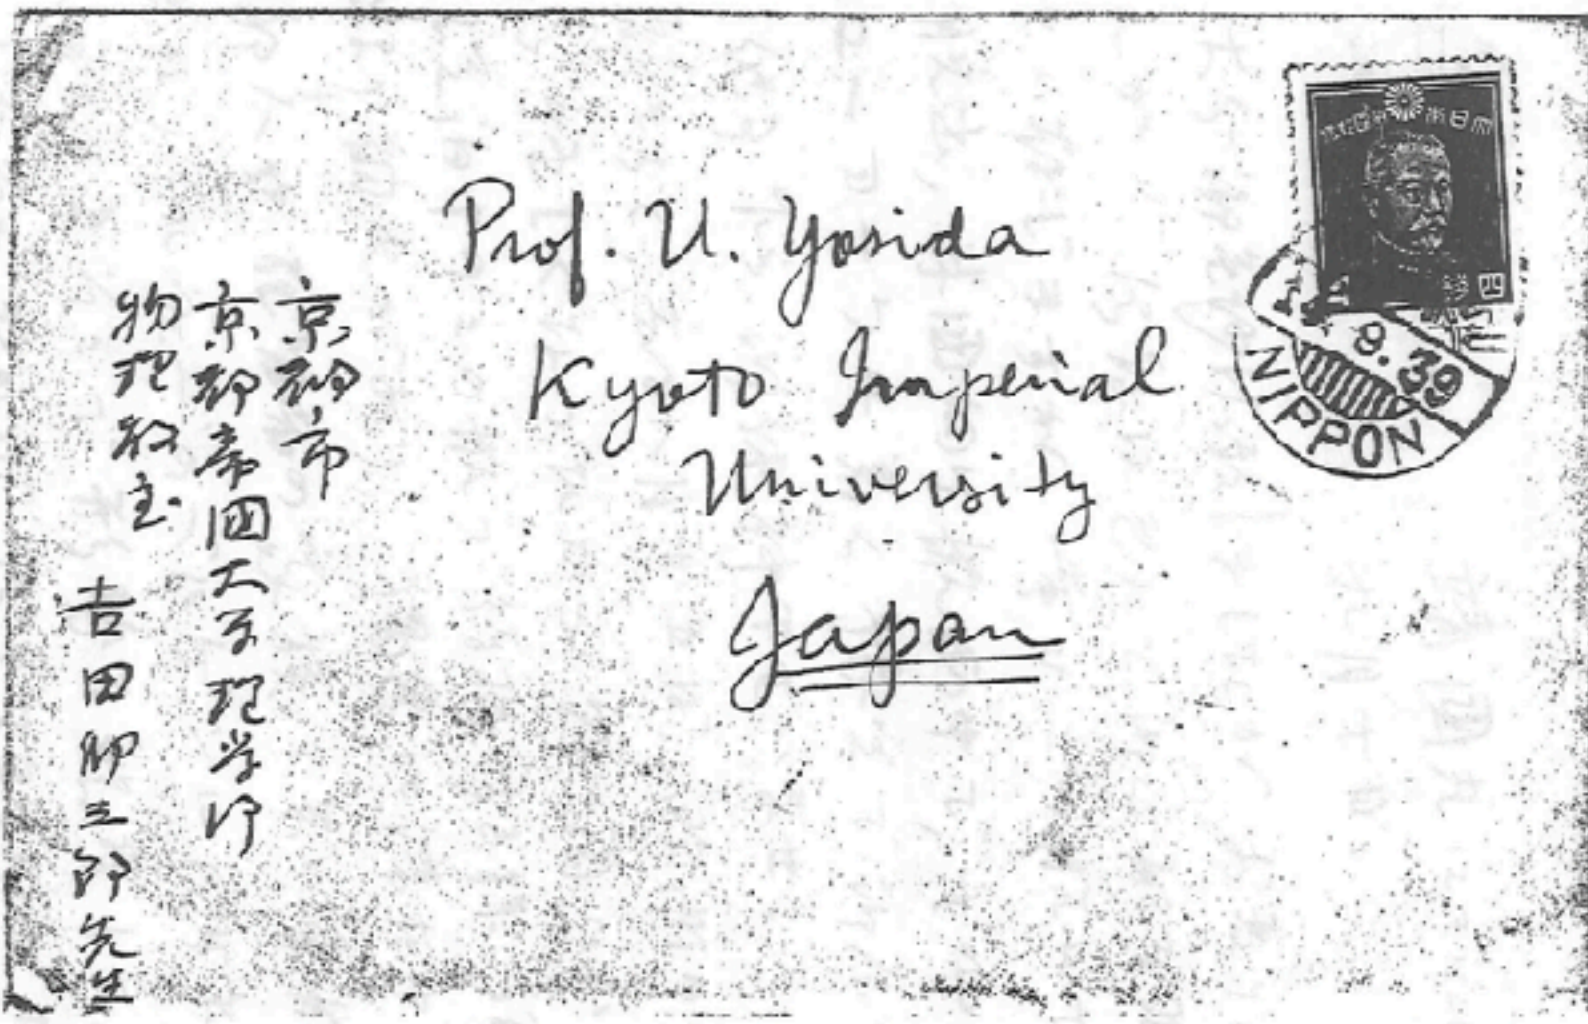 Prof. U. Yosida
Kyoto Imperial
University
Japan
京都市
京都帝国大学理学部
物理教室
吉田卯三郎先生
大日本帝国郵便
四銭
9.39
NIPPON